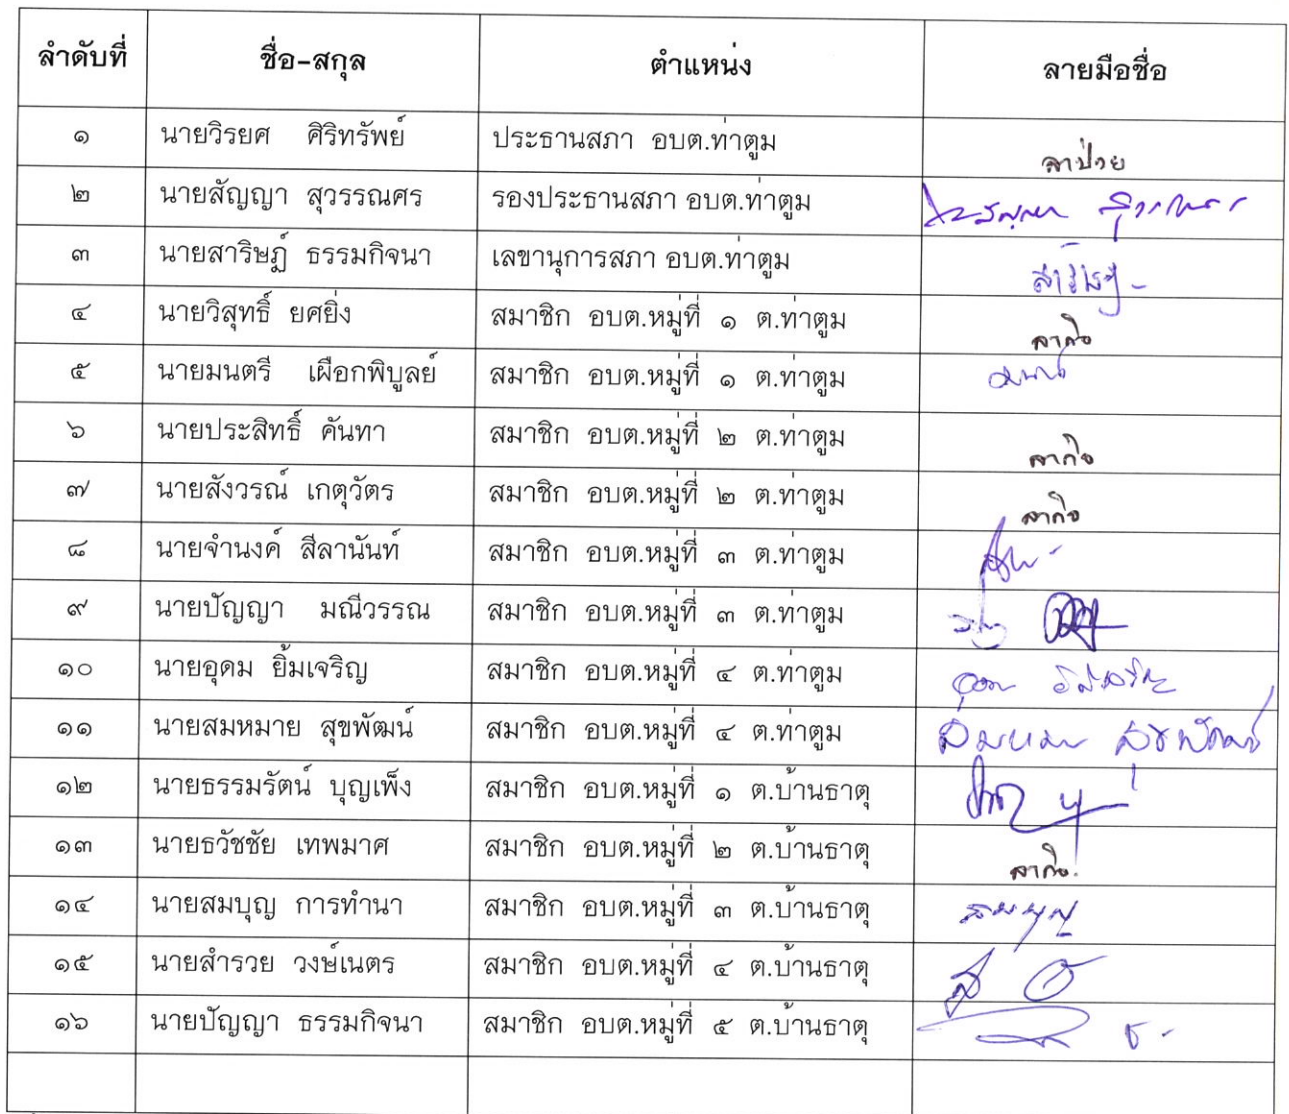 ลำดับที่ ชื่อ-สกุล ตำแหน่ง ลายมือชื่อ
๑ นายวิรยศ ศิริทรัพย์ ประธานสภา อบต.ท่าตูม ลาป่วย
๒ นายสัญญา สุวรรณศร รองประธานสภา อบต.ท่าตูม
๓ นายสาริษฏ์ ธรรมกิจนา เลขานุการสภา อบต.ท่าตูม
๔ นายวิสุทธิ์ ยศยิ่ง สมาชิก อบต.หมู่ที่ ๑ ต.ท่าตูม ลากิจ
๕ นายมนตรี เผือกพิบูลย์ สมาชิก อบต.หมู่ที่ ๑ ต.ท่าตูม
๖ นายประสิทธิ์ คันทา สมาชิก อบต.หมู่ที่ ๒ ต.ท่าตูม ลากิจ
๗ นายสังวรณ์ เกตุวัตร สมาชิก อบต.หมู่ที่ ๒ ต.ท่าตูม ลากิจ
๘ นายจำนงค์ สีลานันท์ สมาชิก อบต.หมู่ที่ ๓ ต.ท่าตูม
๙ นายปัญญา มณีวรรณ สมาชิก อบต.หมู่ที่ ๓ ต.ท่าตูม
๑๐ นายอุดม ยิ้มเจริญ สมาชิก อบต.หมู่ที่ ๔ ต.ท่าตูม
๑๑ นายสมหมาย สุขพัฒน์ สมาชิก อบต.หมู่ที่ ๔ ต.ท่าตูม สมหมาย สุขพัฒน์
๑๒ นายธรรมรัตน์ บุญเพ็ง สมาชิก อบต.หมู่ที่ ๑ ต.บ้านธาตุ
๑๓ นายธวัชชัย เทพมาศ สมาชิก อบต.หมู่ที่ ๒ ต.บ้านธาตุ ลากิจ.
๑๔ นายสมบุญ การทำนา สมาชิก อบต.หมู่ที่ ๓ ต.บ้านธาตุ สมบุญ
๑๕ นายสำรวย วงษ์เนตร สมาชิก อบต.หมู่ที่ ๔ ต.บ้านธาตุ
๑๖ นายปัญญา ธรรมกิจนา สมาชิก อบต.หมู่ที่ ๕ ต.บ้านธาตุ